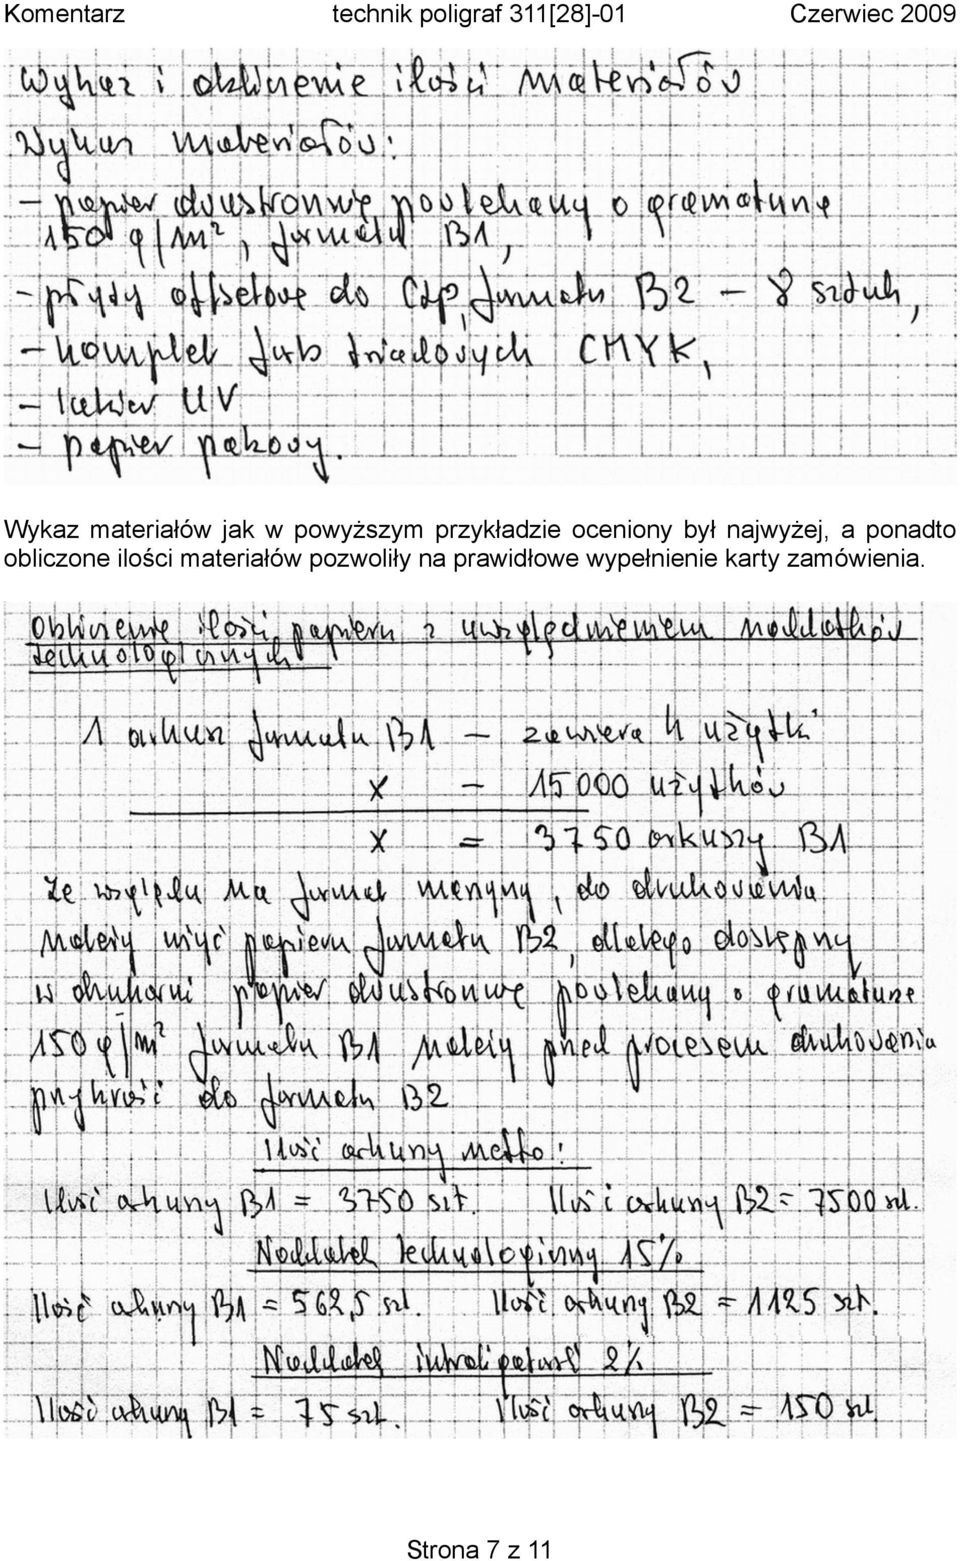 Komentarz technik poligraf 311[28]-01 Czerwiec 2009
Wykaz i obliczenie ilości materiałów
Wykaz materiałów:
- papier dwustronnie powlekany o gramaturze
150 g/m², formatu B1,
- płyty offsetowe do CtP, formatu B2 - 8 sztuk,
- komplet farb triadowych CMYK,
- lakier UV
- papier pakowy.
Wykaz materiałów jak w powyższym przykładzie oceniony był najwyżej, a ponadto
obliczone ilości materiałów pozwoliły na prawidłowe wypełnienie karty zamówienia.
Obliczenie ilości papieru z uwzględnieniem naddatków
technologicznych
1 arkusz formatu B1 - zawiera 4 użytki
x - 15 000 użytków
x = 3750 arkuszy B1
Ze względu na format maszyny, do drukowania
należy użyć papieru formatu B2, dlatego dostępny
w drukarni papier dwustronnie powlekany o gramaturze
150 g/m² formatu B1 należy przed procesem drukowania
przykroić do formatu B2
Ilość arkuszy netto:
Ilość arkuszy B1 = 3750 szt. Ilość arkuszy B2 = 7500 szt.
Naddatek technologiczny 15%
Ilość arkuszy B1 = 562,5 szt. Ilość arkuszy B2 = 1125 szt.
Naddatek introligatorski 2%
Ilość arkuszy B1 = 75 szt. Ilość arkuszy B2 = 150 szt.
Strona 7 z 11